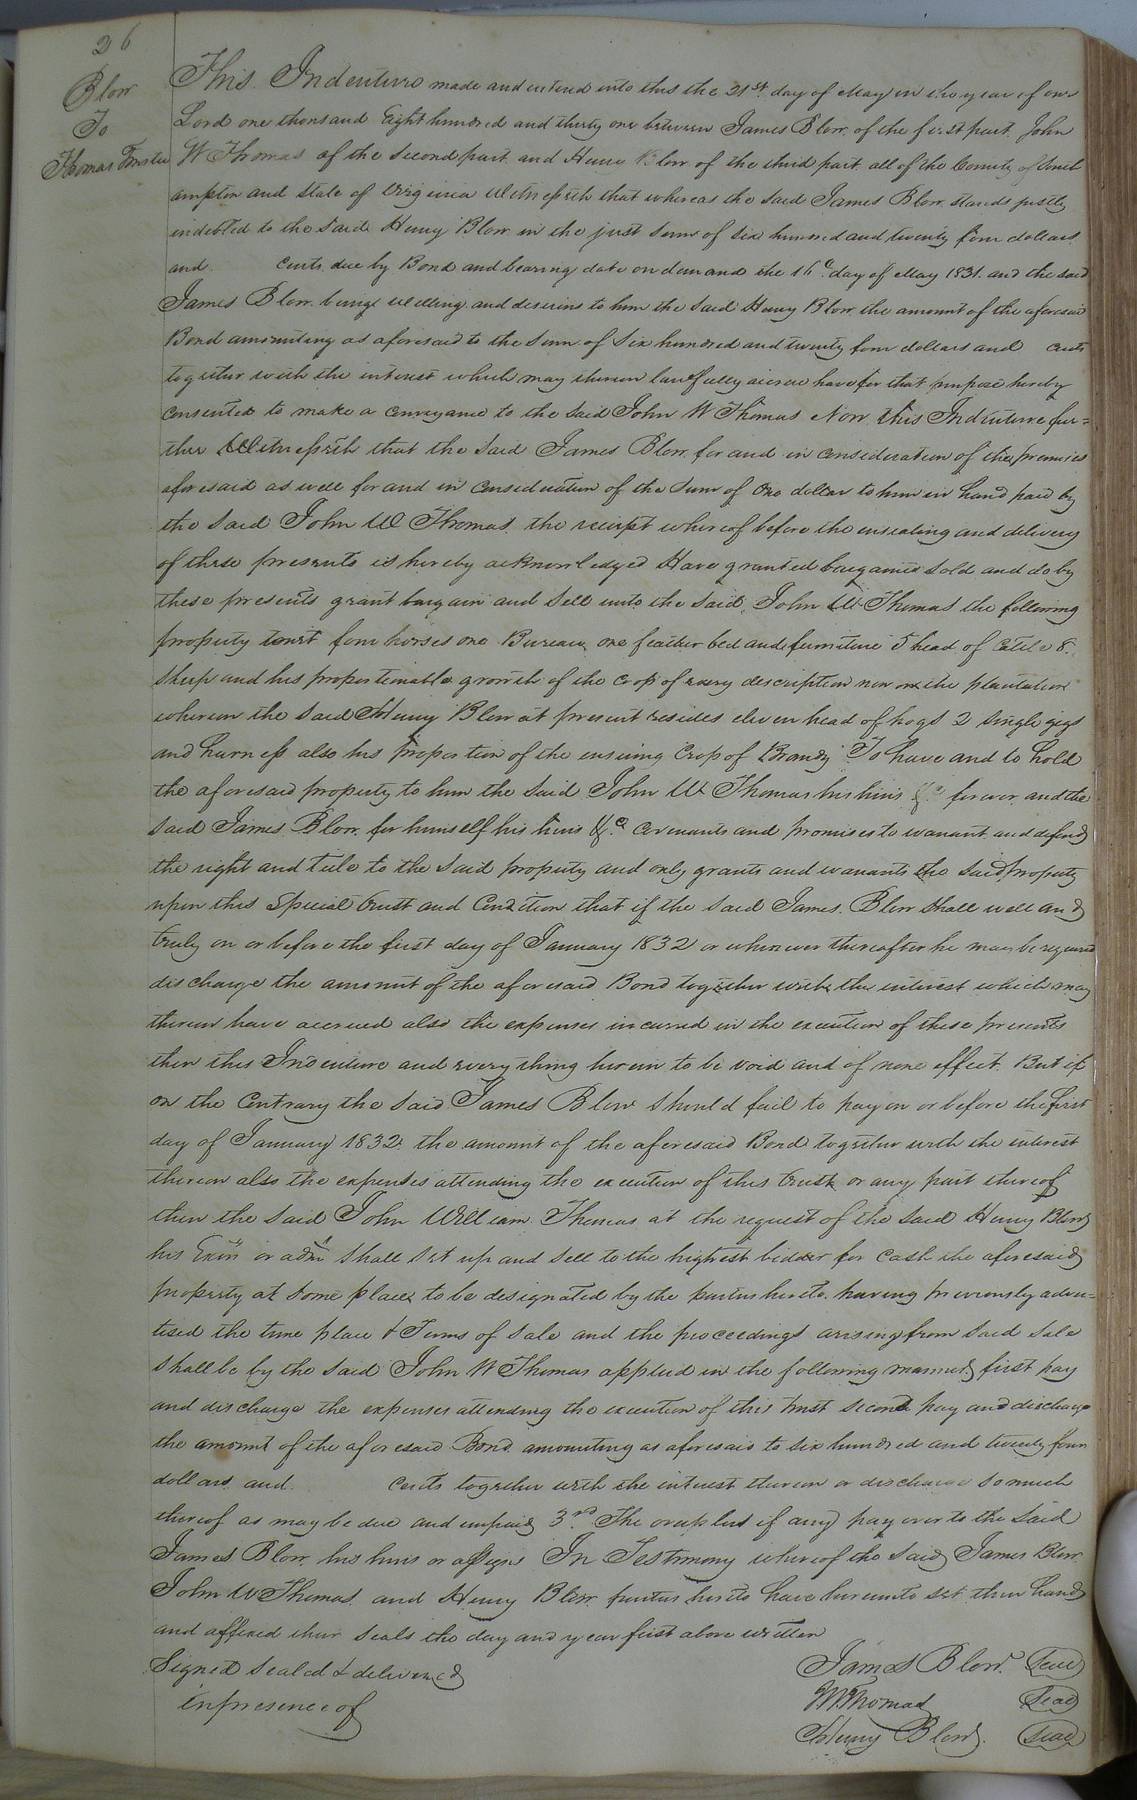 26
Blow
To
Thomas Trustee
This Indenture made and entered into this the 21st day of May in the year of our
Lord one thousand Eight hundred and thirty one between James Blow of the first part John
W Thomas of the second part and Henry Blow of the third part all of the County of South
ampton and State of Virginia Witnesseth that whereas the said James Blow stands justly
indebted to the said Henry Blow in the just sum of six hundred and twenty four dollars
and cents due by Bond and bearing date on demand the 16th day of May 1831 and the said
James Blow being willing and desirous to him the said Henry Blow the amount of the aforesaid
Bond amounting as aforesaid to the sum of Six hundred and twenty four dollars and cents
together with the interest which may thereon lawfully accrue have for that purpose hereby
consented to make a conveyance to the said John W Thomas Now this Indenture fur=
ther Witnesseth that the said James Blow for and in consideration of the premises
aforesaid as well for and in consideration of the sum of One dollar to him in hand paid by
the said John W Thomas the receipt whereof before the ensealing and delivery
of these presents is hereby acknowledged Have granted bargained sold and do by
these presents grant bargain and sell unto the said John W Thomas the following
property towit four horses one Bureau one feather bed and furniture 5 head of Catile 8
sheep and his proportionable growth of the crop of every description now on the plantation
whereon the said Henry Blow at present resides eleven head of hogs 2 single gigs
and harness also his proportion of the ensuing Crop of Brandy To have and to hold
the aforesaid property to him the said John W Thomas his heirs &c forever and the
said James Blow for himself his heirs &c covenants and promises to warrant and defend
the right and title to the said property and only grants and warrants the said Property
upon this special trust and Condition that if the said James Blow shall well and
truly on or before the first day of January 1832 or whenever thereafter he may be required
discharge the amount of the aforesaid Bond together with the interest which may
thereon have accrued also the expenses incurred in the execution of these presents
then this Indenture and every thing herein to be void and of none effect. But if
on the Contrary the said James Blow should fail to pay on or before the first
day of January 1832 the amount of the aforesaid Bond together with the interest
thereon also the expenses attending the execution of this trust or any part thereof
then the said John William Thomas at the request of the said Henry Blow
his Exors or adm shall set up and sell to the highest bidder for Cash the aforesaid
property at some place to be designated by the parties hereto having previously adver=
tised the time place & Terms of sale and the proceedings arising from said sale
shall be by the said John W Thomas applied in the following manner first pay
and discharge the expenses attending the execution of this trust second pay and discharge
the amount of the aforesaid Bond amounting as aforesaid to six hundred and twenty four
dollars and cents together with the interest thereon or discharge so much
thereof as may be due and unpaid 3rd The overplus if any pay over to the said
James Blow his heirs or assigns In Testimony whereof the said James Blow
John W Thomas and Henry Blow parties hereto have hereunto set their hands
and affixed their seals the day and year first above written
Signed Sealed & delivered
in presence of
James Blow Seal
W Thomas Seal
Henry Blow Seal